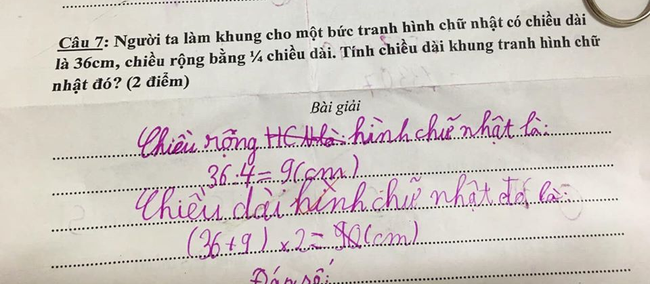 Câu 7: Người ta làm khung cho một bức tranh hình chữ nhật có chiều dài
là 36cm, chiều rộng bằng ¼ chiều dài. Tính chiều dài khung tranh hình chữ
nhật đó? (2 điểm)
Bài giải
Chiều rộng HCN là: hình chữ nhật là:
36:4=9(cm)
Chiều dài hình chữ nhật đó là:
(36+9)×2=90(cm)
Đáp số: